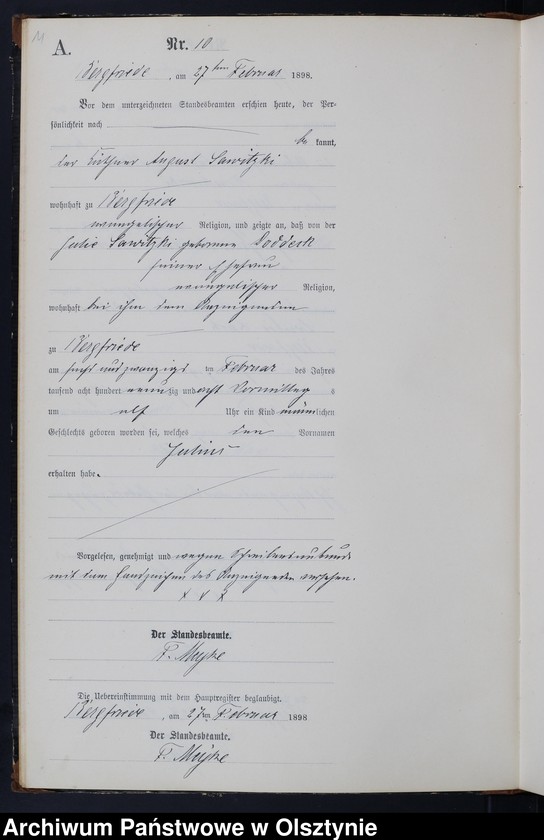 11
A.
Nr. 10
Bergfriede, am 27ten Februar 1898.
Vor dem unterzeichneten Standesbeamten erschien heute, der Per-
sönlichkeit nach
be kannt,
der Käthner August Sawitzki
wohnhaft zu Bergfriede
evangelischer Religion, und zeigte an, daß von der
Julie Sawitzki geborene Doddeck
seiner Ehefrau
evangelischer Religion,
wohnhaft bei ihm dem Anzeigenden
zu Bergfriede
am sechs und zwanzigs ten Februar des Jahres
tausend acht hundert neunzig und acht Vormittag s
um elf Uhr ein Kind männlichen
Geschlechts geboren worden sei, welches den Vornamen
Julius
erhalten habe.
Vorgelesen, genehmigt und wegen Schreibensunkunde
mit dem Handzeichen des Anzeigenden versehen.
X X X
Der Standesbeamte.
F.
Die Uebereinstimmung mit dem Hauptregister beglaubigt.
Bergfriede, am 27ten Februar 1898
Der Standesbeamte.
F.
Archiwum Państwowe w Olsztynie